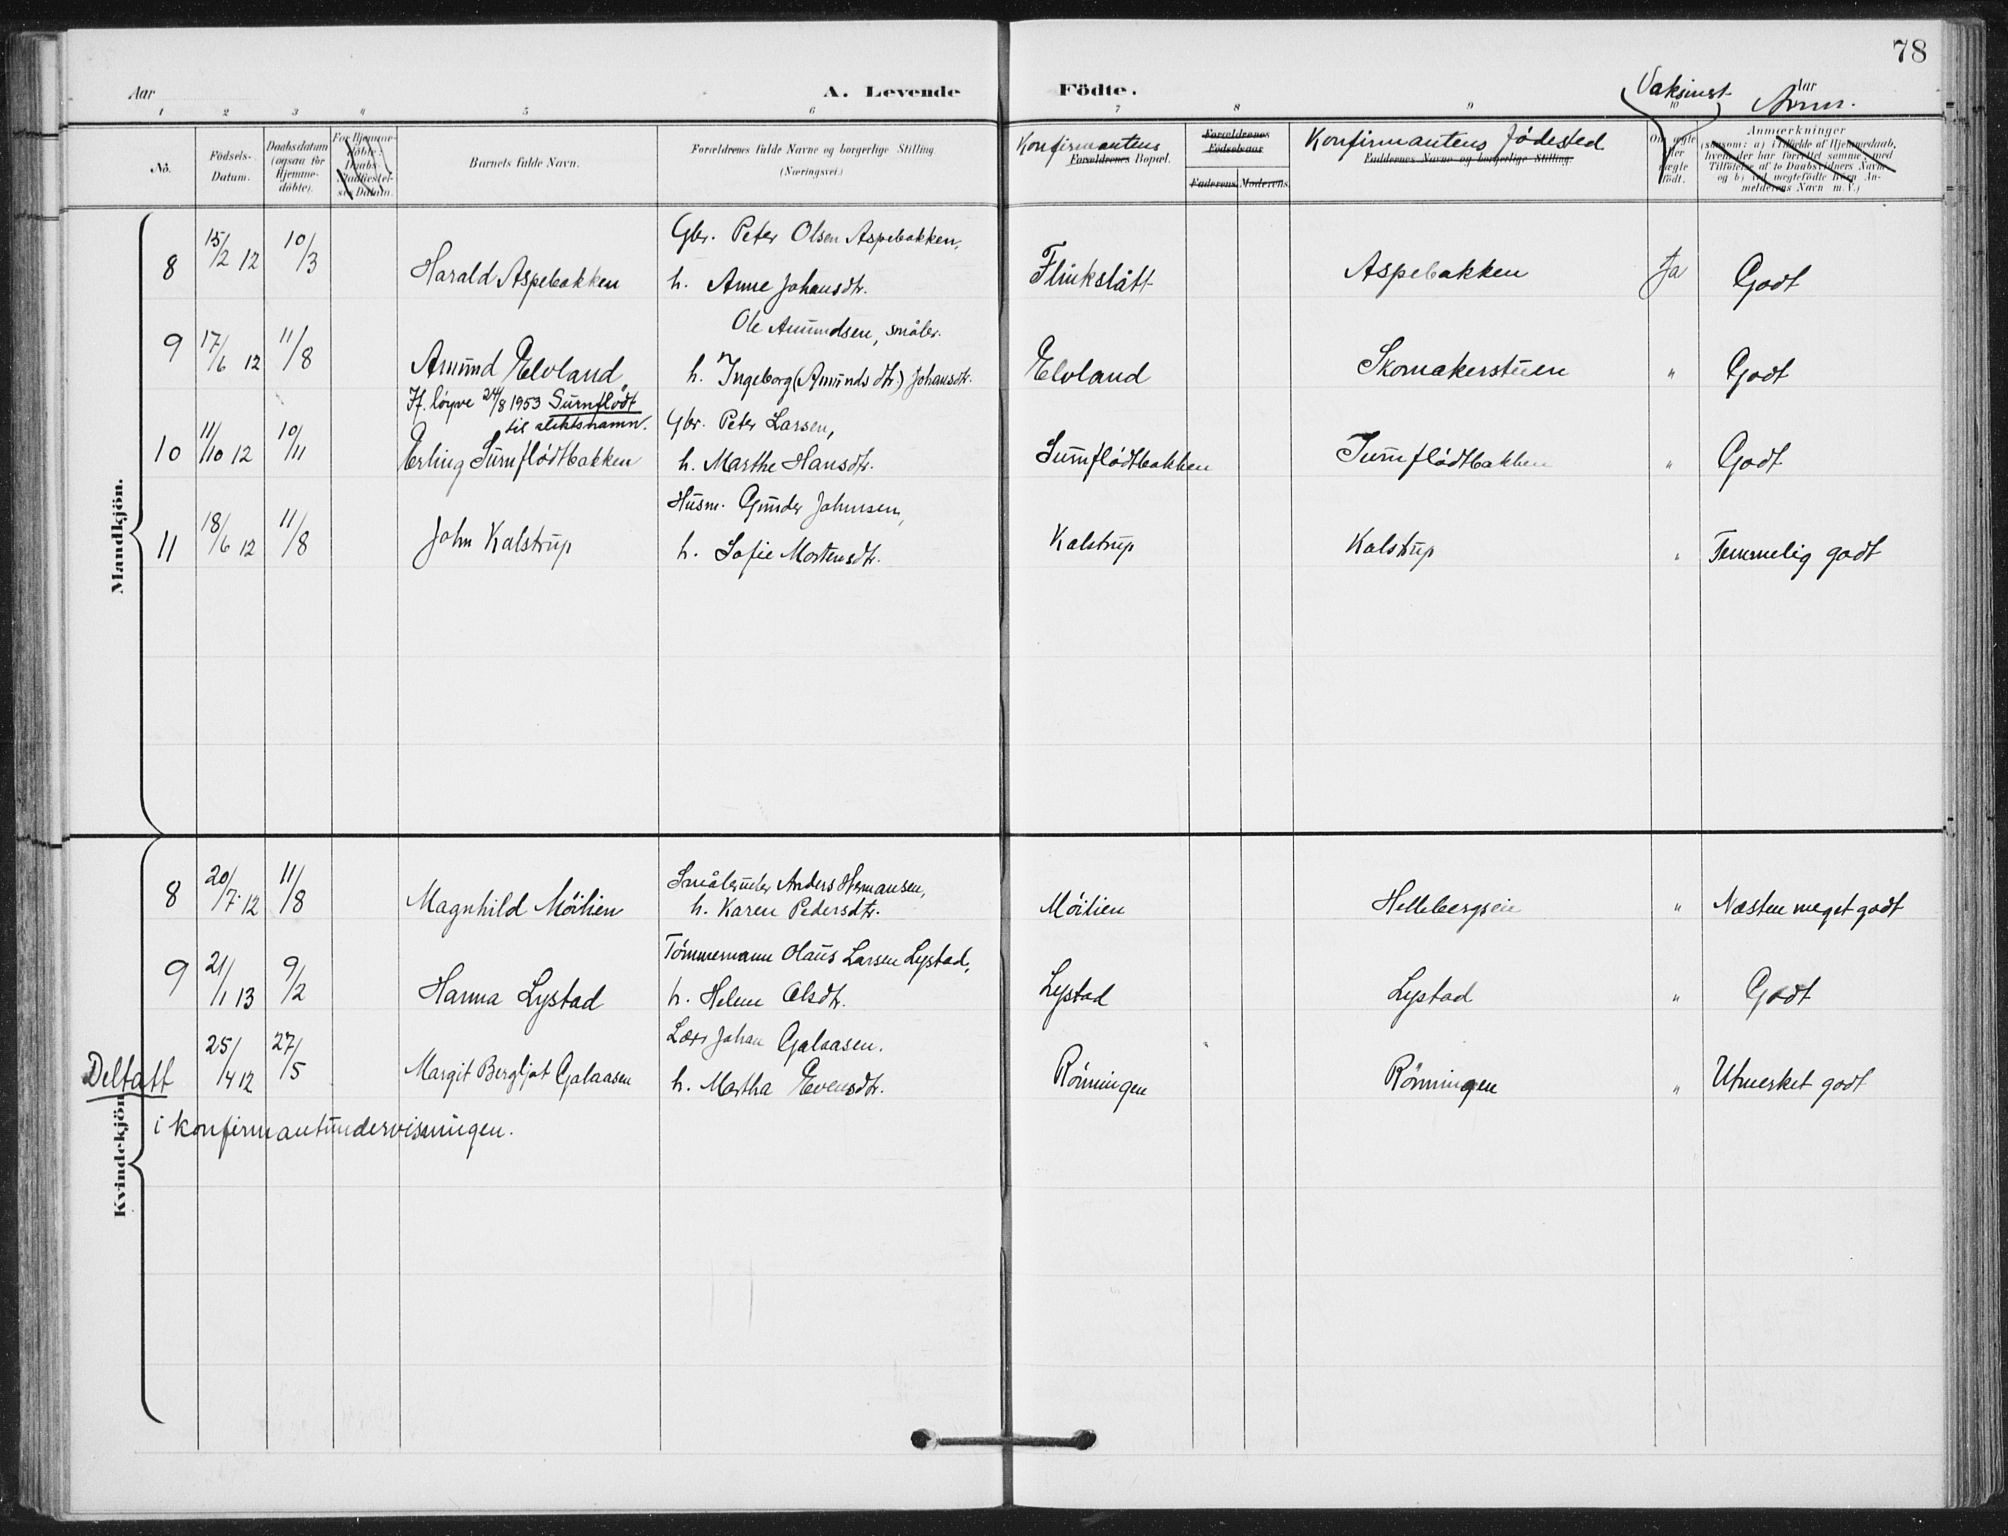 78
Aar A. Levende Födte. Vaksinert Aar Anm.
1 2 3 4 5 6 7 8 9 10
No. Födsels-Datum. Daabsdatum (ogsaa for Hjemmedöbte). For Hjemmedöbte: Daabs Stadfæstelses Datum. Barnets fulde Navn. Forældrenes fulde Navne og borgerlige Stilling (Næringsvei.) Konfirmantens Forældrenes Bopæl. Forældrenes Födselsaar Faderens Moderens Konfirmantens fødested Fadderenes Navne og borgerlige Stilling. Om ægte eller uægte födt. Anmærkninger (saasom: a) i Tilfælde af Hjemmedaab, hvem der har forrettet samme med Tilföielse af to Daabsvidners Navne og b) ved uægtefödte Börn Anmelderens Navn m. V.)
Mandkjön.
Gbr. Peter Olsen Aspebakken,
8 15/2 12 10/3 Harald Aspebakken h. Anne Johansdtr. Flinkslått Aspebakken Ja Godt
Ole Amundsen, småbr.
9 17/6 12 11/8 Amund Elvland h. Ingeborg (Amundsdtr.) Johansdtr. Elvland Skomakerstuen " Godt
If. løyve 24/8 1953 Surnflødt
til slektsnamn.
Gbr. Peter Larsen,
10 11/10 12 10/11 Erling Surnflødtbakken h. Marthe Hansdtr. Surnflødtbakken Surnflødtbakken " Godt
Husm. Gunder Johnsen,
11 18/6 12 11/8 John Kalstrup h. Sofie Mortensdtr. Kalstrup Kalstrup " Temmelig godt
Kvindekjön
Småbruker Anders Hermansen,
8 20/7 12 11/8 Magnhild Möilien h. Karen Pedersdtr. Möilien Hellebergseie " Næsten meget godt
Tømmermann Olaus Larsen Lystad,
9 21/1 13 9/2 Hanna Lystad h. Helene Olsdtr. Lystad Lystad " Godt
Lars Johan Galaasen.
Deltatt 25/4 12 27/5 Margit Bergljot Galaasen h. Martha Evensdtr. Rønningen Rønningen " Utmerket godt
i konfirmantundervisningen.